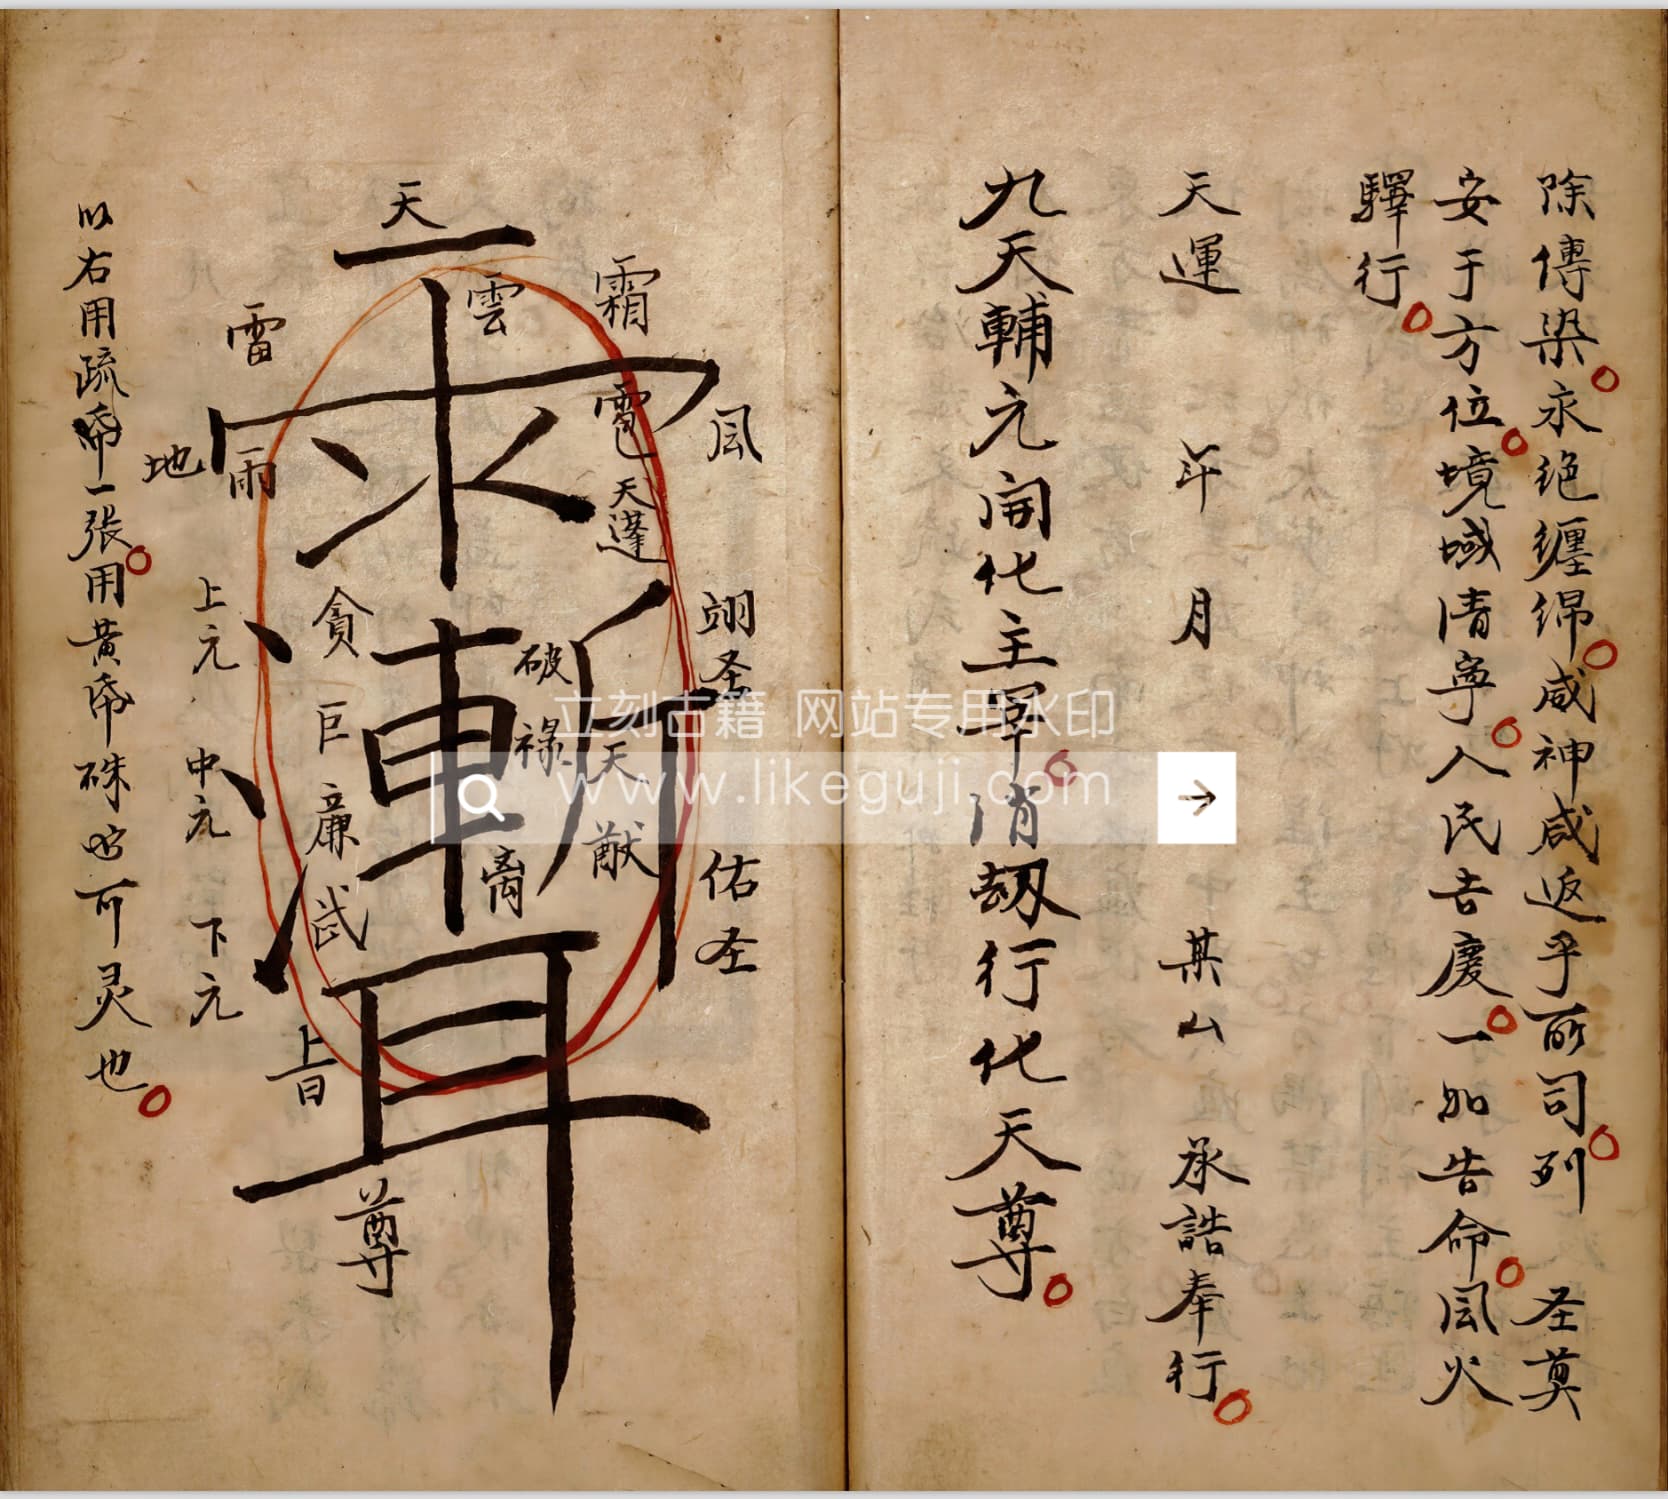 除傳染永绝缠绵威神咸返乎所司列 圣奠
安于方位境域清寧人民吉慶一如告命风火
驛行
天運 年 月 某山 承誥奉行
九天輔元開化主宰消劫行化天尊
天
雲
霜
雷
雹
风
地
雨
天蓬
翊圣
貪
巨
廉
武
破
禄
离
天猷
佑圣
上元
中元
下元
尊
以右用疏帋一张用黄帋硃也可灵也
立刻古籍 网站专用水印
www.likeguji.com